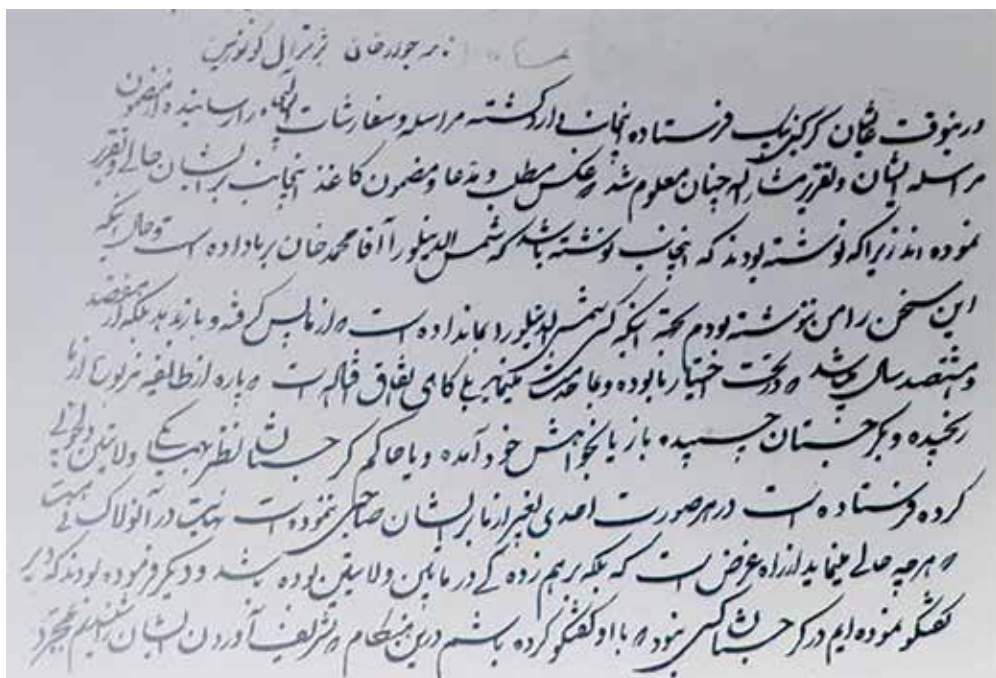 نامه جوادخان بژنرال گودویچ
درینوقت عالیشان کرکین بیک فرستاده اینجانب وارد گشته مراسله و سفارشات را رسانیده از مضمون
مراسله ایشان و تقریر مشارالیه چنان معلوم شد که عکس مطلب و مدعا و مضمون کاغذ اینجانب بر ایشان حالی و تقریر
نموده اند زیرا که نوشته بودند که اینجانب نوشته باشد که شمس الدینلو را آقا محمد خان بر ما داده است و حال اینکه
این سخن را من ننوشته بودم بجهة اینکه کسی شمس الدینلو را بما نداده است که از ما پس گرفته و باز بدهد بلکه از هفتصد
و هشتصد سال میباشد که در تحت اختیار ما بوده و ما خدمت کاهی بنفاق فیمابین است که پاره از طایفه مزبور از ما
رنجیده و بگرجستان چسپیده باز یا بخواهش خود آمده و یا حاکم گرجستان نظر بهمسایگی و ولایتین دلجوئی
کرده فرستاده است در هر صورت احدی بغیر از ما بر ایشان صاحبی ننموده است نهایت در آنولا کسی
که هر چه حالی مینماید از راه غرض است که بلکه برهم زده گی در مابین ولایتین بوده باشد و دیگر فرموده بودند که
گفتگو نموده ایم در گرجستان کسی نبود که با او گفتگو کرده باشم درین هنگام که تشریف آوردن ایشان را شنیدیم